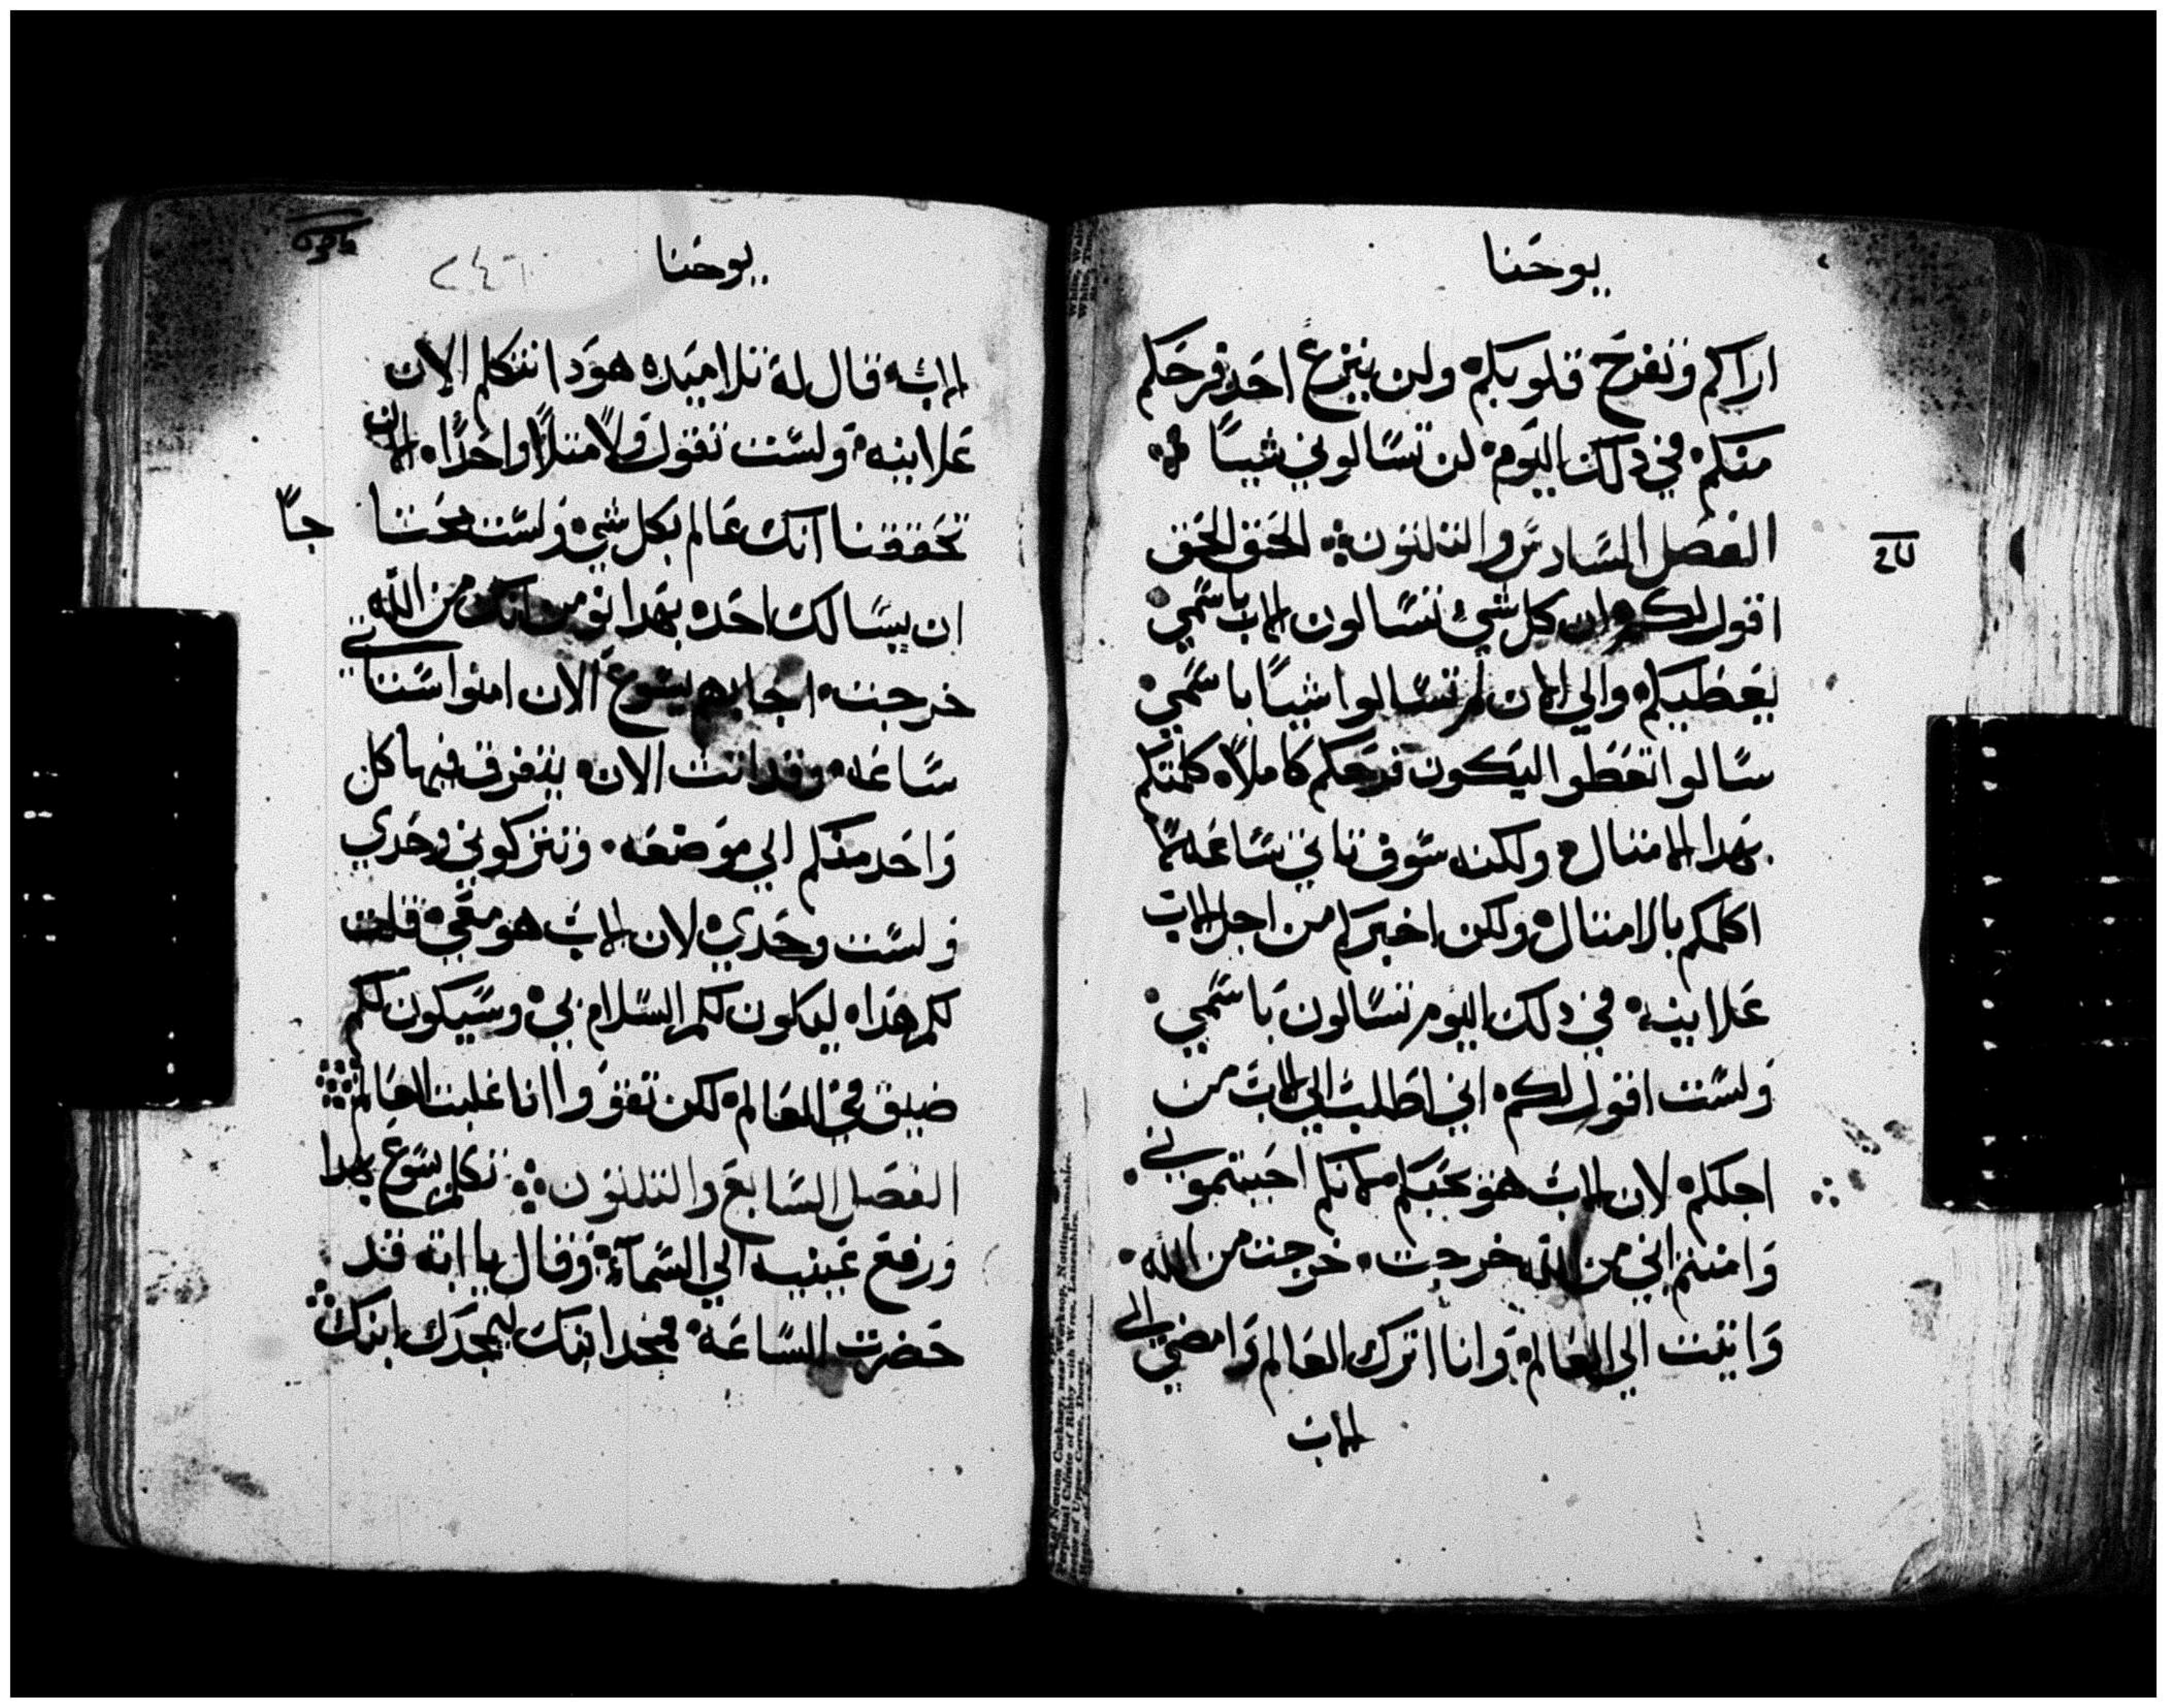 يوحنا
اراكم وتفرح قلوبكم ولن ينزع احد فرحكم
منكم في دلك اليوم لن تسالوني شيا
الفصل السادس والتلتون الحق الحق
اقول لكم ان كل شي تسالون الاب باسمي
يعطيكم والي الان لم تسالوا شيا باسمي
سالوا تعطوا ليكون فرحكم كاملا كلمتكم
بهدا الامتال ولكنه سوف تاتي ساعه لا
اكلمكم بالامتال ولكن اخبركم من اجل الاب
علانيه في دلك اليوم تسالون باسمي
ولست اقول لكم اني اطلب الي الاب من
اجلكم لان الاب هو يحبكم لانكم احببتموني
وامنتم اني من الله خرجت خرجت من الله
واتيت الي العالم وانا اترك العالم وامضي الي
الاب
يوحنا
٢٤٦
الاب قال له تلاميده هودا تتكلم الان
علانيه ولست تقول ولا متلا واحدا الان
تحققنا انك عالم بكل شي ولست محتاجا
ان يسالك احد بهدا نومن انك من الله
خرجت اجابهم يسوع الان امنوا ستاتي
ساعه وقد اتت الان يتفرق فيها كل
واحد منكم الي موضعه وتتركوني وحدي
ولست وحدي لان الاب هو معي قلت
لكم هدا ليكون لكم السلام بي وسيكون لكم
ضيق في العالم لكن تقووا انا غلبت العالم
الفصل السابع والتلتون تكلم يسوع بهدا
ورفع عينيه الي السماء وقال يا ابته قد
حضرت الساعه مجد ابنك ليمجدك ابنك